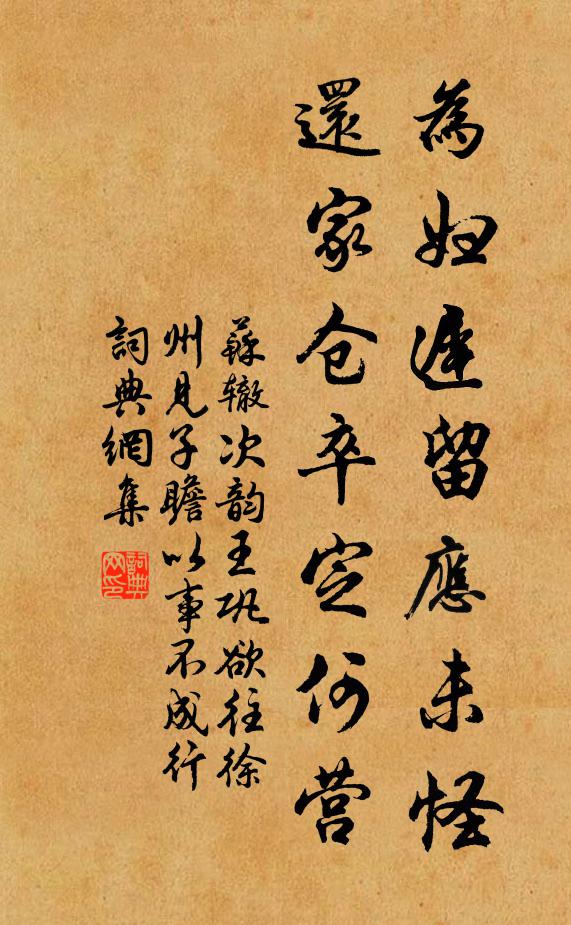 為妇遲留應未怪
還家仓卒定何营
蘇辙次韵王巩欲往徐
州見子瞻以事不成行
詞典網集
詞典网印